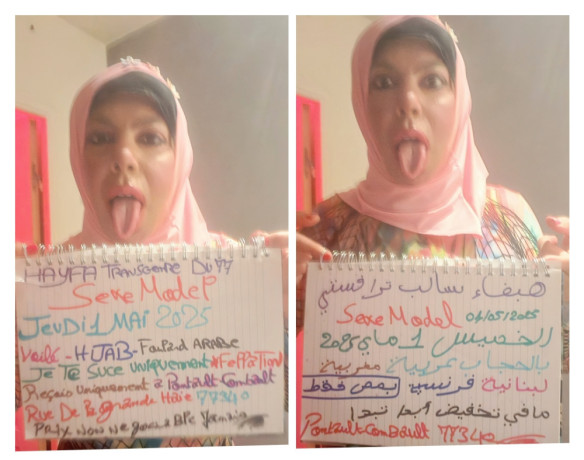 HAYFA TRANSGENRE DU 77
Sexe Model
JeuDi 1 MAI 2025
Voile - HIJAB - Foulard ARABE
Je Te Suce UNIQUEMENT #FellATion
Reçois Uniquement à Pontault Combault
Rue De La grande Haie 77340
Prix Non Negociable
هيفاء سالب ترافستي
Sexe Model 01/05/2025
الخميس 1 ماي 2025
بالحجاب عربية مغربية
لبنانية فرنسية بمص فقط
مافي تخفيض أبدا تبدا
Pontault-Combault 77340